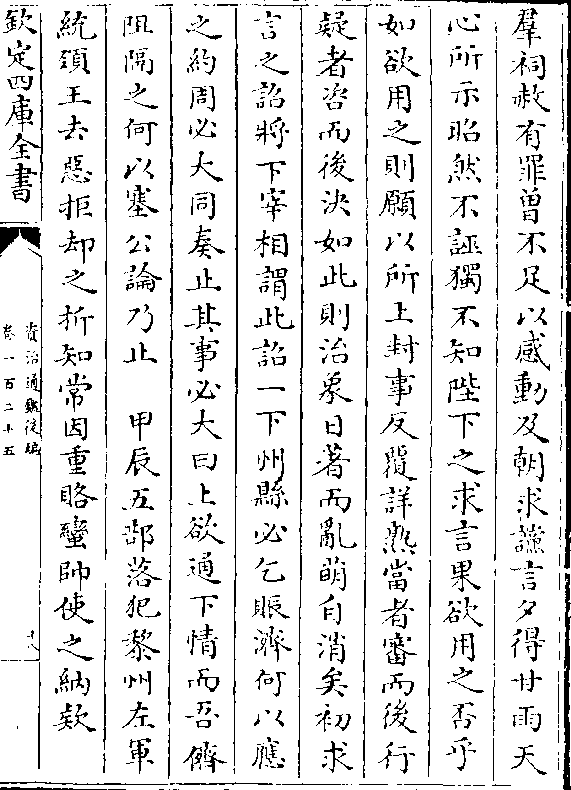 羣祠赦有罪曽不足以感動及朝求讜言夕得甘雨天
心所示昭然不誣獨不知陛下之求言果欲用之否乎
如欲用之則願以所上封事反覆詳熟當者審而後行
疑者咨而後決如此則治象日著而亂萌自消矣初求
言之詔將下宰相謂此詔一下州縣必乞賑濟何以應
之約周必大同奏止其事必大曰上欲通下情而吾儕
阻隔之何以塞公論乃止　甲辰五部落犯黎州左軍
統領王去惡拒却之折知常因重賂蠻帥使之納款
欽定四庫全書
資治通鑑後編
卷一百二十五
十八